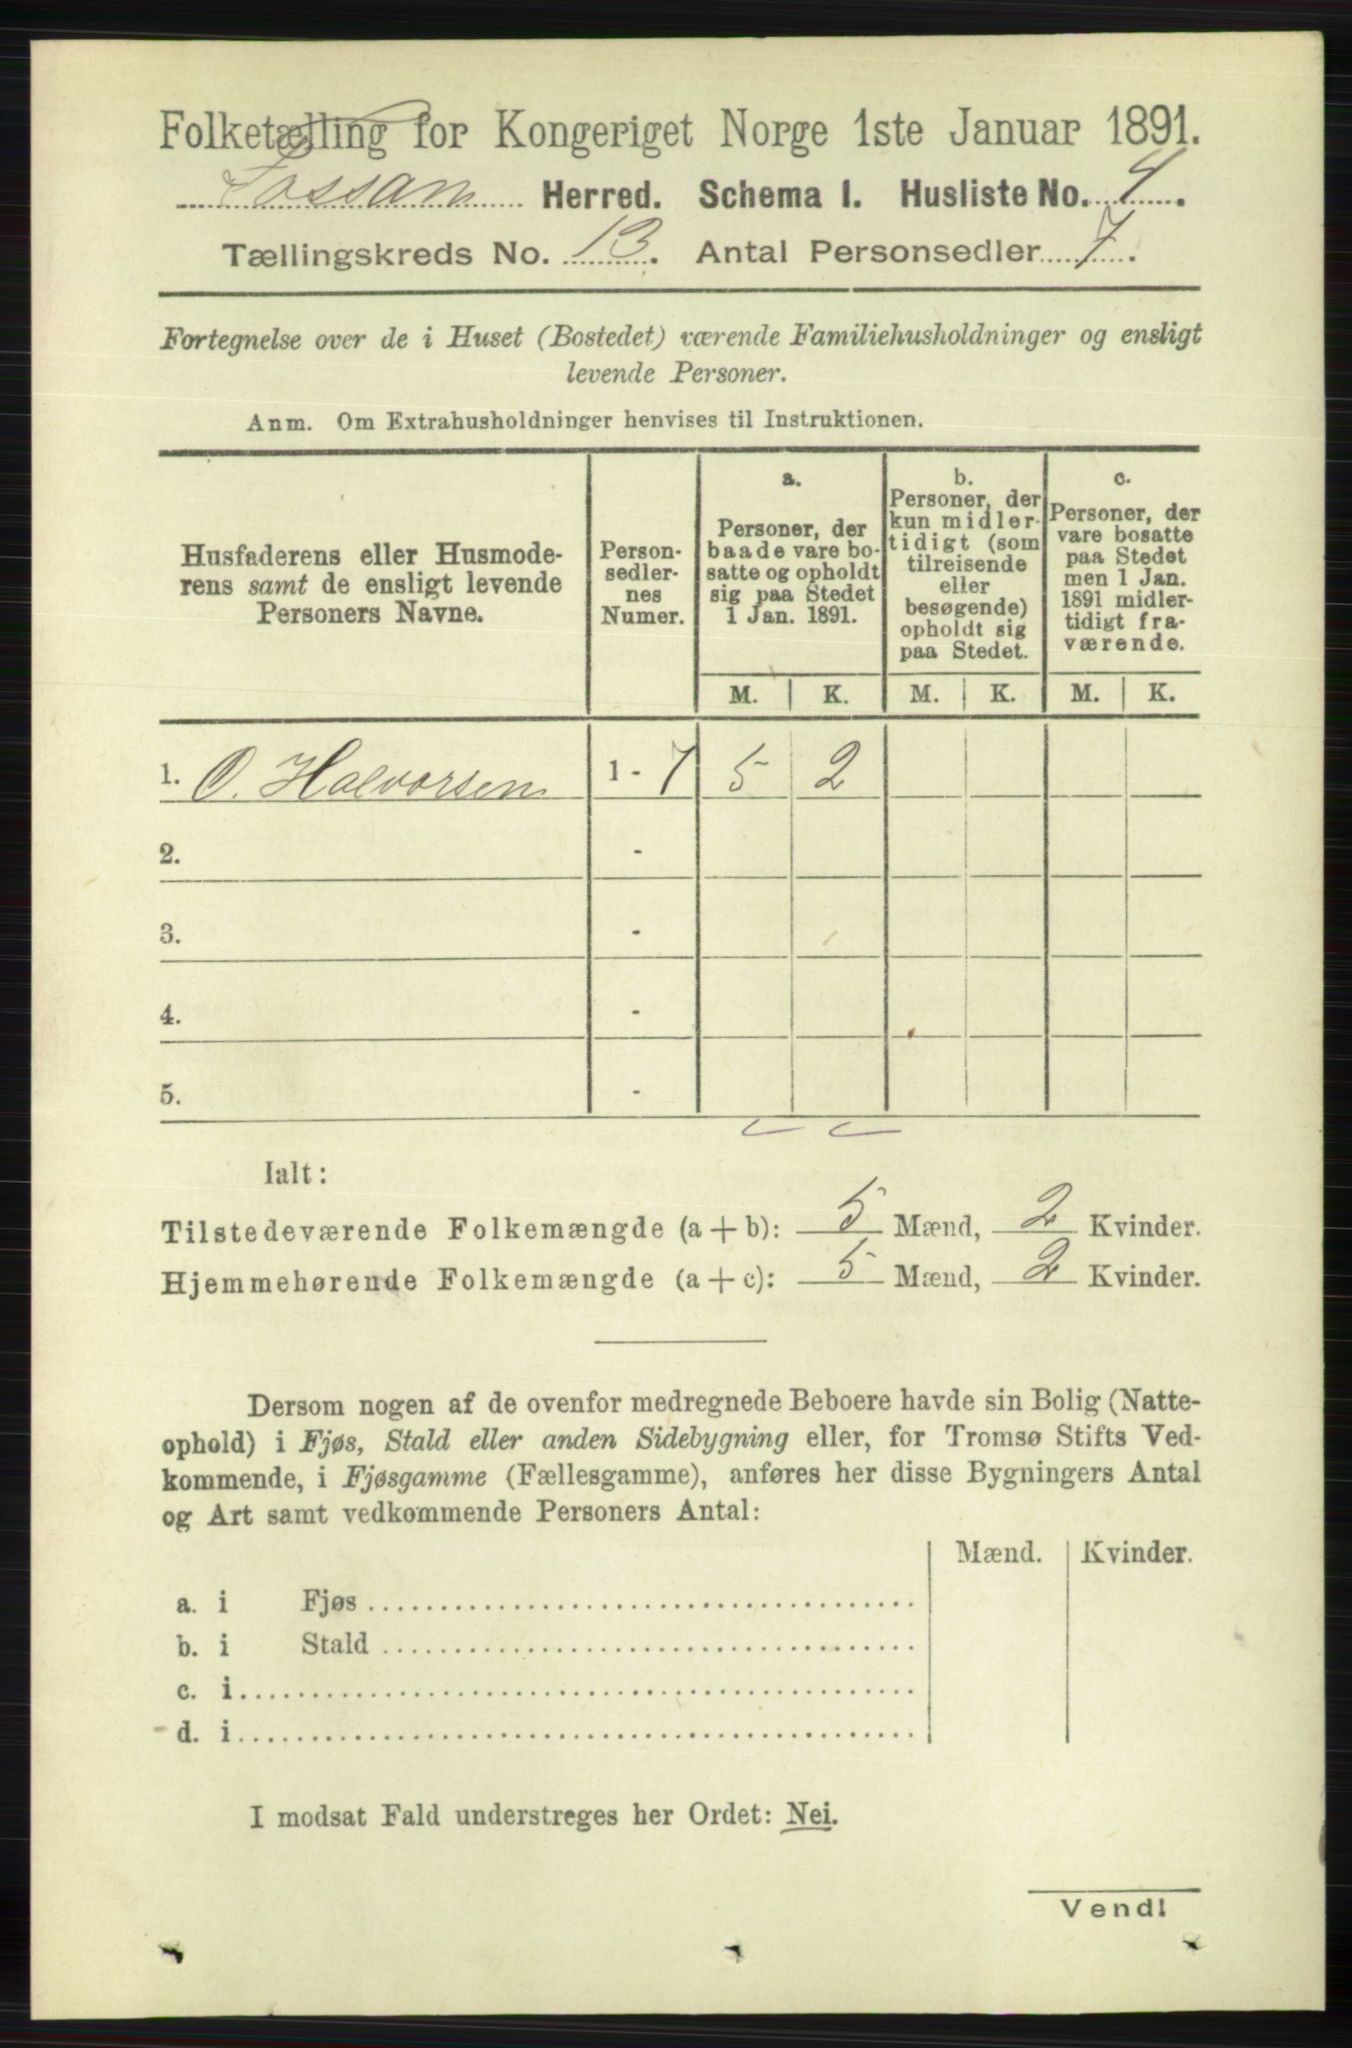 Folketælling for Kongeriget Norge 1ste Januar 1891.
Fossan Herred. Schema I. Husliste No. 4.
Tællingskreds No. 13. Antal Personsedler 7.
Fortegnelse over de i Huset (Bostedet) værende Familiehusholdninger og ensligt
levende Personer.
Anm. Om Extrahusholdninger henvises til Instruktionen.
Husfaderens eller Husmode-
rens samt de ensligt levende
Personers Navne.
Person-
sedler-
nes
Numer.
a.
Personer, der
baade vare bo-
satte og opholdt
sig paa Stedet
1 Jan. 1891.
b.
Personer, der
kun midler-
tidigt (som
tilreisende
eller
besøgende)
opholdt sig
paa Stedet.
c.
Personer, der
vare bosatte
paa Stedet
men 1 Jan.
1891 midler-
tidigt fra-
værende.
M. K. M. K. M. K.
1. O. Halvorsen 1 - 7 5 2
2. -
3. -
4. -
5. -
Ialt:
Tilstedeværende Folkemængde (a + b): 5 Mænd, 2 Kvinder.
Hjemmehørende Folkemængde (a + c): 5 Mænd, 2 Kvinder.
Dersom nogen af de ovenfor medregnede Beboere havde sin Bolig (Natte-
ophold) i Fjøs, Stald eller anden Sidebygning eller, for Tromsø Stifts Ved-
kommende, i Fjøsgamme (Fællesgamme), anføres her disse Bygningers Antal
og Art samt vedkommende Personers Antal:
Mænd. Kvinder.
a. i Fjøs
b. i Stald
c. i
d. i
I modsat Fald understreges her Ordet: Nei.
Vend!